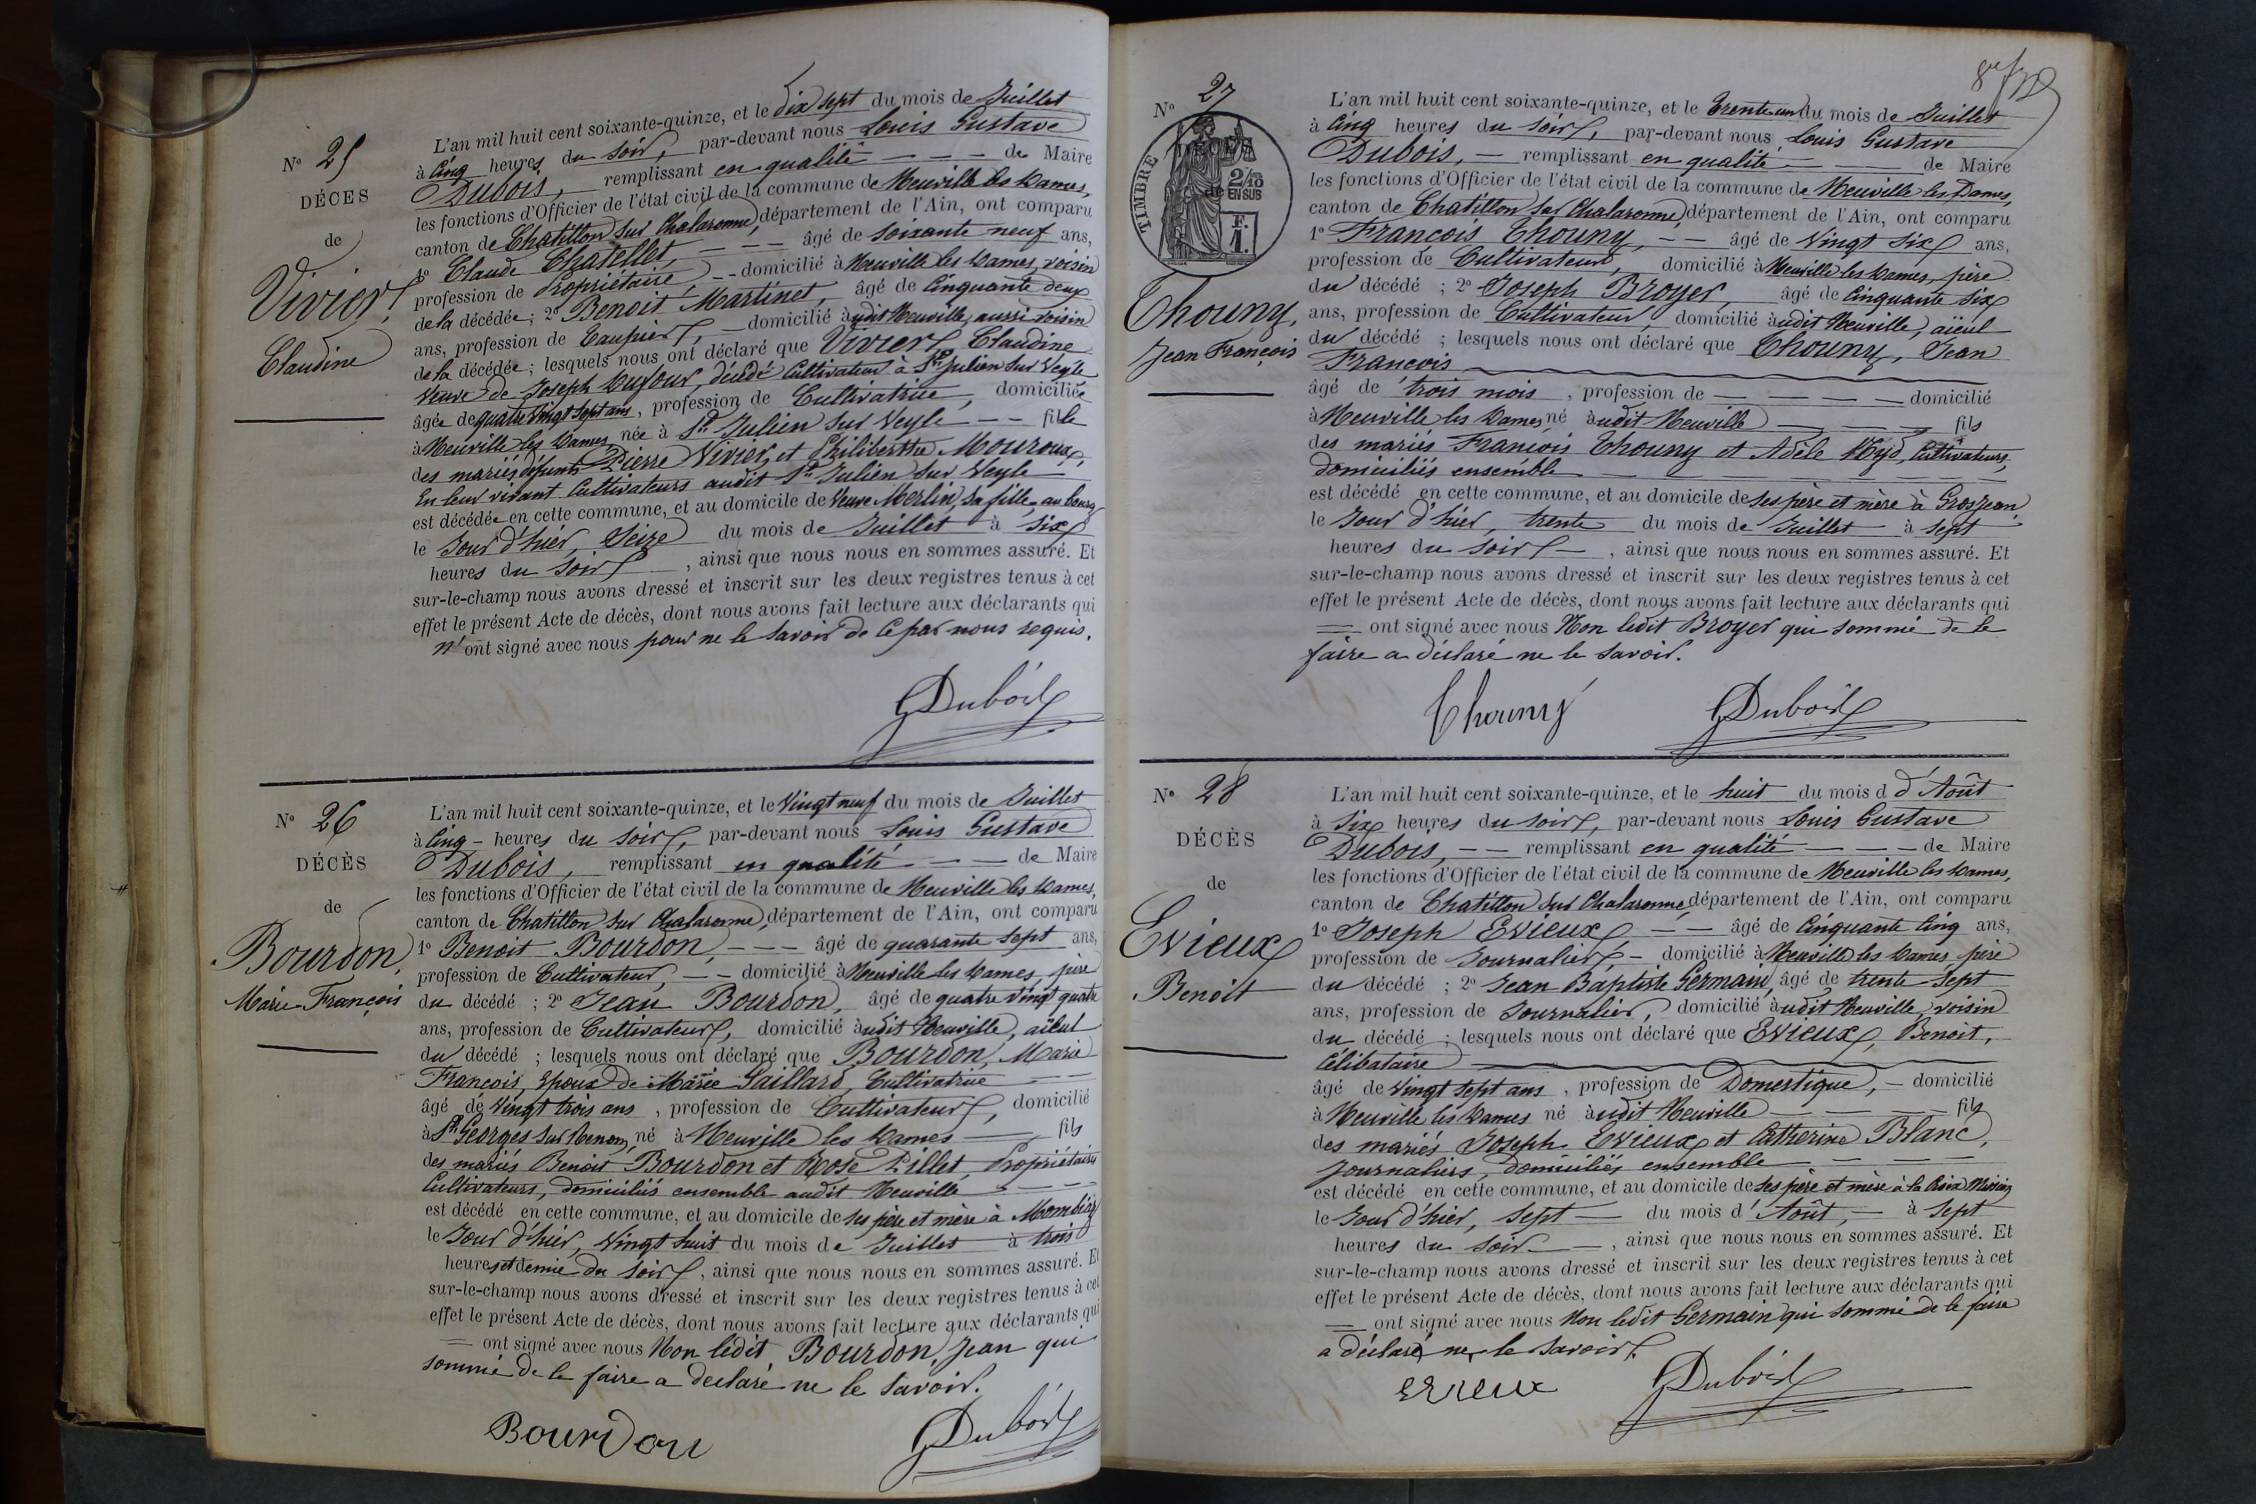 N° 25
DÉCES
de
Vivier,
Claudine
L'an mil huit cent soixante-quinze, et le dix sept du mois de Juillet
à cinq heures du soir, par-devant nous Louis Gustave
Dubois, remplissant en qualité de Maire
les fonctions d'Officier de l'état civil de la commune de Neuville les Dames,
canton de Chatillon sur Chalaronne, département de l'Ain, ont comparu
1° Claude Chatellet, âgé de soixante neuf ans,
profession de Propriétaire, domicilié à Neuville les Dames, voisin
de la décédée ; 2° Benoit Martinet, âgé de cinquante deux
ans, profession de Taupier, domicilié audit Neuville, aussi voisin
de la décédée ; lesquels nous ont déclaré que Vivier, Claudine
veuve de Joseph, décédé cultivateur à St Julien sur Veyle
âgée de quatre vingt sept ans, profession de Cultivatrice, domiciliée
à Neuville les Dames, née à St Julien sur Veyle fille
des mariés défunts Pierre Vivier, et Philiberthe Mouroux,
En leur vivant Cultivateurs audit St Julien sur Veyle
est décédée en cette commune, et au domicile de Veuve Merlin, sa fille, au bourg
le Jour d'hier, Seize du mois de Juillet à six
heures du soir, ainsi que nous nous en sommes assuré. Et
sur-le-champ nous avons dressé et inscrit sur les deux registres tenus à cet
effet le présent Acte de décès, dont nous avons fait lecture aux déclarants qui
n'ont signé avec nous pour ne le savoir de ce par nous requis.
GDubois
N° 26
DÉCÈS
de
Bourdon,
Marie-François
L'an mil huit cent soixante-quinze, et le Vingt neuf du mois de Juillet
à cinq heures du soir, par-devant nous Louis Gustave
Dubois, remplissant en qualité de Maire
les fonctions d'Officier de l'état civil de la commune de Neuville les Dames,
canton de Chatillon sur Chalaronne, département de l'Ain, ont comparu
1° Benoit Bourdon, âgé de quarante sept ans,
profession de Cultivateur, domicilié à Neuville les Dames, père
du décédé ; 2° Jean Bourdon, âgé de quatre vingt quatre
ans, profession de Cultivateur, domicilié audit Neuville, aïeul
du décédé ; lesquels nous ont déclaré que Bourdon, Marie
François, Epoux de Marie Gaillard, Cultivatrice
âgé de vingt trois ans, profession de Cultivateur, domicilié
à St Georges sur Renon, né à Neuville les Dames fils
des mariés Benoit Bourdon et Rose Pillet, Propriétaires
Cultivateurs, domiciliés ensemble audit Neuville
est décédé en cette commune, et au domicile de ses père et mère à
le Jour d'hier, Vingt huit du mois de Juillet à trois
heures et demie du soir, ainsi que nous nous en sommes assuré. Et
sur-le-champ nous avons dressé et inscrit sur les deux registres tenus à cet
effet le présent Acte de décès, dont nous avons fait lecture aux déclarants qui
ont signé avec nous Non ledit Bourdon, Jean qui
sommé de le faire a déclaré ne le savoir.
Bourdon GDubois
N° 27
TIMBRE
2/10
EN SUS
F.
1.
Thouny,
Jean François
L'an mil huit cent soixante-quinze, et le trente-un du mois de Juillet
à cinq heures du soir, par-devant nous Louis Gustave
Dubois, remplissant en qualité de Maire
les fonctions d'Officier de l'état civil de la commune de Neuville les Dames,
canton de Chatillon sur Chalaronne, département de l'Ain, ont comparu
1° François Thouny, âgé de vingt six ans,
profession de Cultivateur, domicilié à Neuville les Dames, père
du décédé ; 2° Joseph Broyer, âgé de cinquante six
ans, profession de Cultivateur, domicilié audit Neuville, aïeul
du décédé ; lesquels nous ont déclaré que Thouny, Jean
François
âgé de trois mois, profession de domicilié
à Neuville les Dames né audit Neuville fils
des mariés François Thouny et Adèle, Cultivateurs,
domiciliés ensemble
est décédé en cette commune, et au domicile de ses père et mère à Grosjean
le Jour d'hier, trente du mois de Juillet à sept
heures du soir, ainsi que nous nous en sommes assuré. Et
sur-le-champ nous avons dressé et inscrit sur les deux registres tenus à cet
effet le présent Acte de décès, dont nous avons fait lecture aux déclarants qui
ont signé avec nous Non ledit Broyer qui sommé de le
faire a déclaré ne le savoir.
Thouny GDubois
N° 28
DÉCÈS
de
Evieux
Benoit
L'an mil huit cent soixante-quinze, et le huit du mois d d'Août
à six heures du soir, par-devant nous Louis Gustave
Dubois, remplissant en qualité de Maire
les fonctions d'Officier de l'état civil de la commune de Neuville les Dames,
canton de Chatillon sur Chalaronne, département de l'Ain, ont comparu
1° Joseph Evieux, âgé de cinquante cinq ans,
profession de Journalier, domicilié à Neuville les Dames, père
du décédé ; 2° Jean Baptiste Germain, âgé de trente sept
ans, profession de Journalier, domicilié audit Neuville, voisin
du décédé ; lesquels nous ont déclaré que Evieux, Benoit,
Célibataire
âgé de vingt sept ans, profession de Domestique, domicilié
à Neuville les Dames né audit Neuville fils
des mariés Joseph Evieux et Catherine Blanc,
Journaliers, domiciliés ensemble
est décédé en cette commune, et au domicile de ses père et mère à la Croix
le Jour d'hier, sept du mois d'Août, à sept
heures du soir, ainsi que nous nous en sommes assuré. Et
sur-le-champ nous avons dressé et inscrit sur les deux registres tenus à cet
effet le présent Acte de décès, dont nous avons fait lecture aux déclarants qui
ont signé avec nous Non ledit Germain qui sommé de le faire
a déclaré ne le savoir.
Evieux GDubois